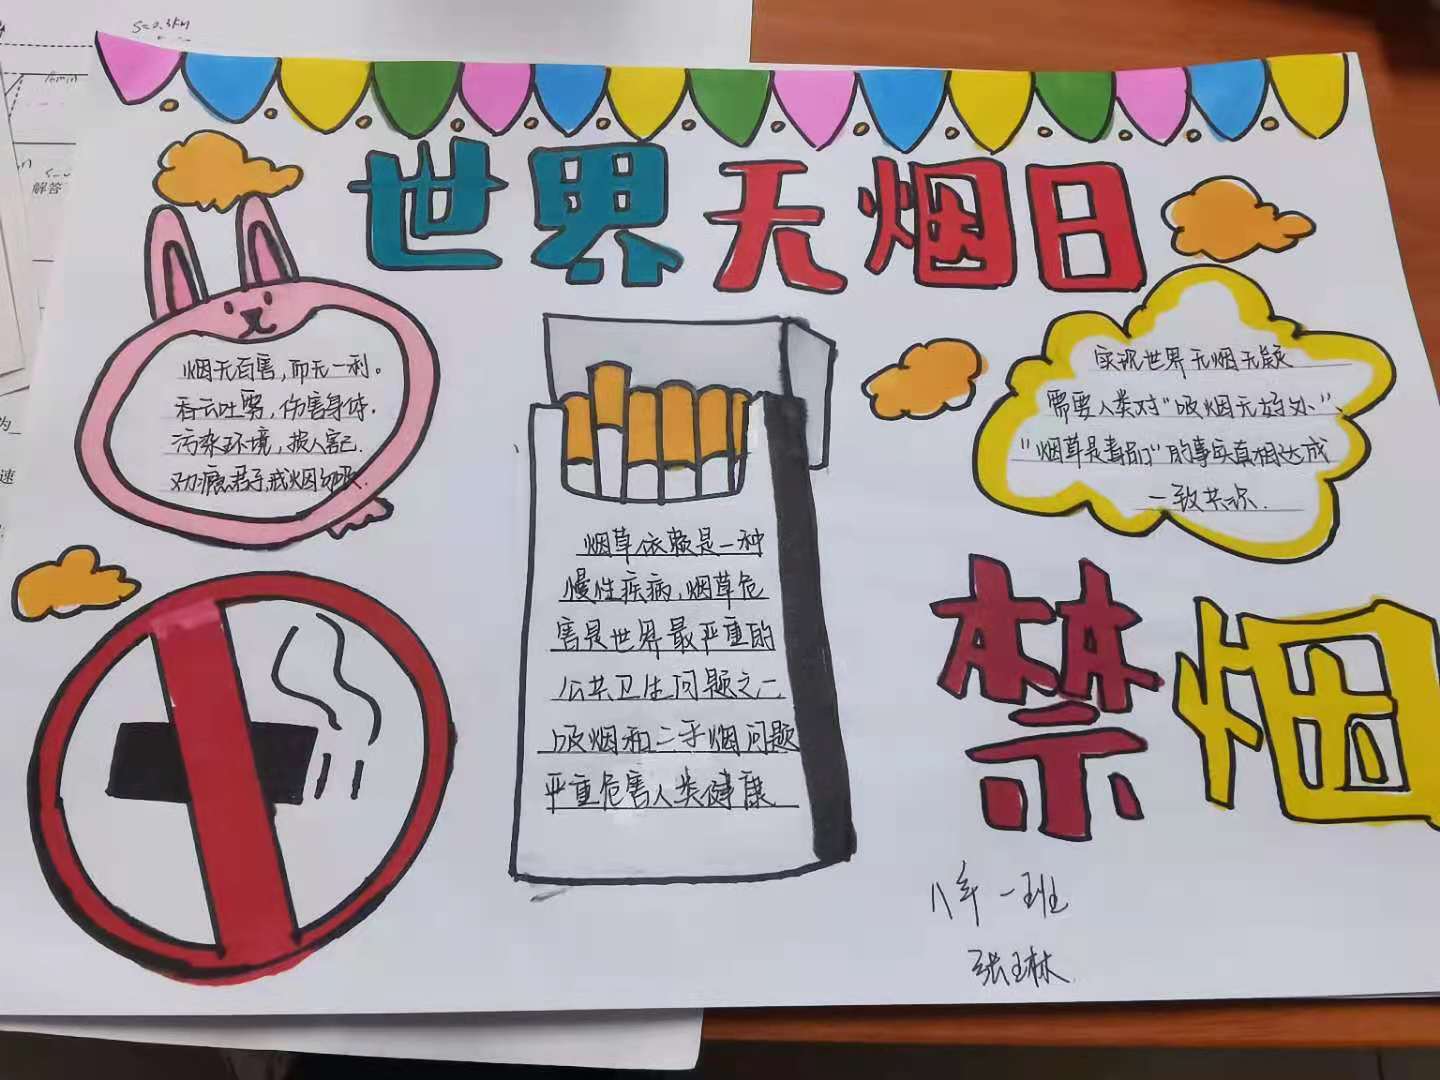 S=0.3km
解答
为
速
世界无烟日
烟无百害，而无一利。
吞云吐雾，伤害身体.
污染环境，损人害己.
劝瘾君子,戒烟
烟草依赖是一种
慢性疾病,烟草危
害是世界最严重的
公共卫生问题之一
吸烟和二手烟问题
严重危害人类健康
实现世界无烟无疑
需要人类对“吸烟无好处”、
“烟草是毒品”的事实真相达成
一致共识.
禁烟
八年一班
张玉林